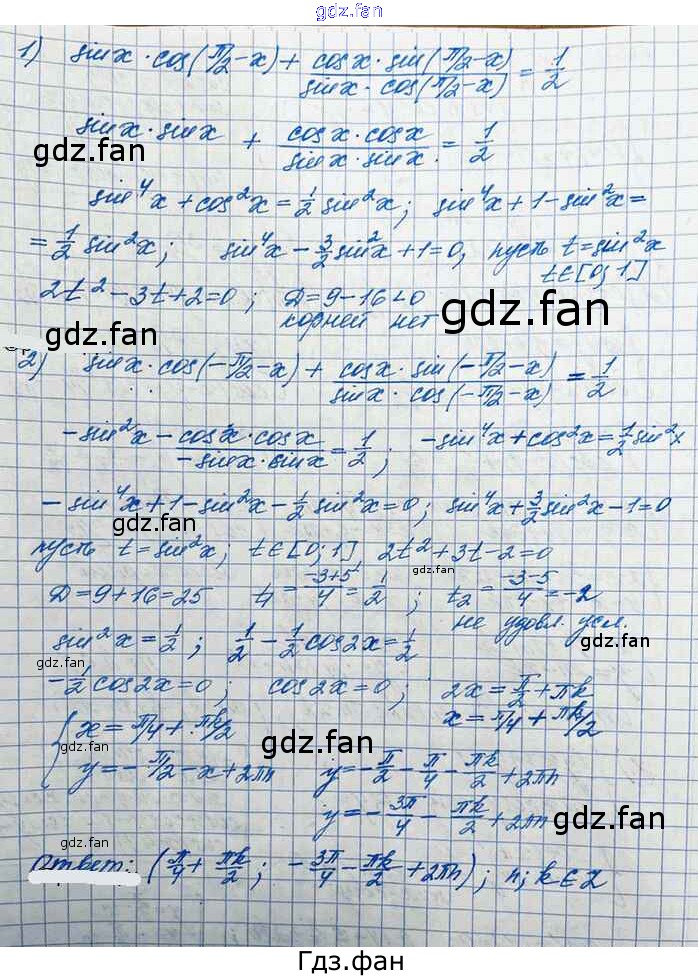 gdz.fan
1) sin x · cos(π/2 − x) + (cos x · sin(π/2 − x))/(sin x · cos(π/2 − x)) = 1/2
sin x · sin x + (cos x · cos x)/(sin x · sin x) = 1/2
gdz.fan
gdz.fan
sin⁴x + cos²x = 1/2 sin²x; sin⁴x + 1 − sin²x =
= 1/2 sin²x; sin⁴x − 3/2 sin²x + 1 = 0, пусть t = sin²x
t ∈ [0; 1]
2t² − 3t + 2 = 0; D = 9 − 16 < 0
корней нет
gdz.fan
gdz.fan
2) sin x · cos(−π/2 − x) + (cos x · sin(−π/2 − x))/(sin x · cos(−π/2 − x)) = 1/2
−sin²x − (cos x · cos x)/(−sin x · sin x) = 1/2; −sin⁴x + cos²x = 1/2 sin²x
gdz.fan
−sin⁴x + 1 − sin²x − 1/2 sin²x = 0; sin⁴x + 3/2 sin²x − 1 = 0
gdz.fan
пусть t = sin²x; t ∈ [0; 1] 2t² + 3t − 2 = 0
gdz.fan
D = 9 + 16 = 25 t₁ = (−3+5)/4 = 1/2; t₂ = (−3−5)/4 = −2
не удовл. усл.
sin²x = 1/2; 1/2 − 1/2 cos 2x = 1/2
gdz.fan
gdz.fan
−1/2 cos 2x = 0; cos 2x = 0; 2x = π/2 + πk
x = π/4 + πk/2
{ x = π/4 + πk/2
gdz.fan
gdz.fan
y = −π/2 − x + 2πn y = −π/2 − π/4 − πk/2 + 2πn
y = −3π/4 − πk/2 + 2πn
gdz.fan
gdz.fan
Ответ: (π/4 + πk/2; −3π/4 − πk/2 + 2πn); n; k ∈ Z
Гдз.фан